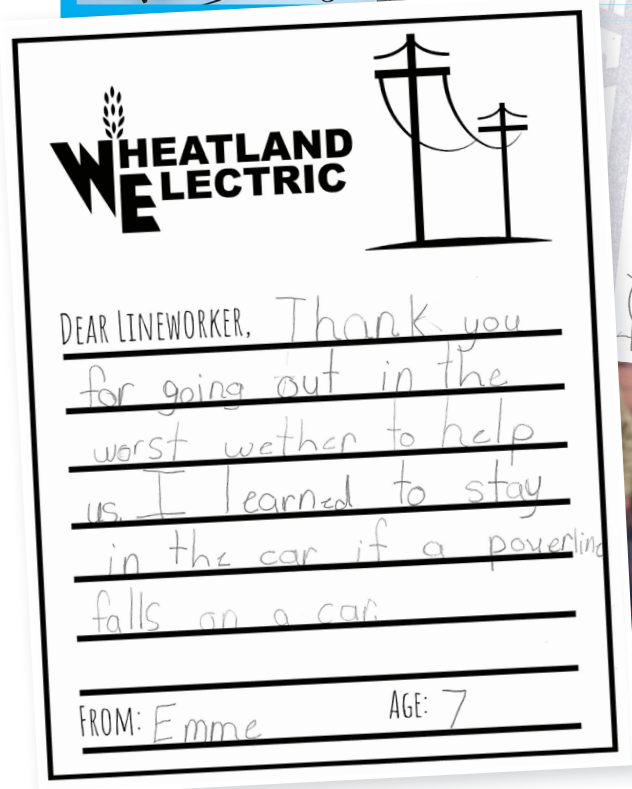 WHEATLAND
ELECTRIC
DEAR LINEWORKER, Thank you
for going out in the
worst wether to help
us. I learned to stay
in the car if a powerline
falls on a car.
FROM: Emme AGE: 7